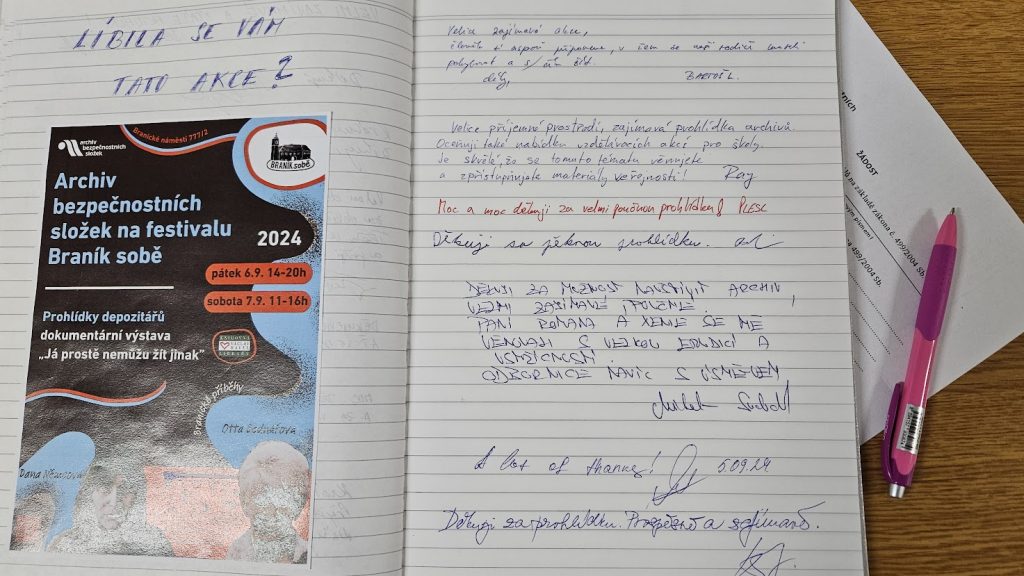 LÍBILA SE VÁM
TATO AKCE?
Branické náměstí 777/2
archiv
bezpečnostních
složek
BRANÍK sobě
Archiv
bezpečnostních
složek na festivalu
Braník sobě
2024
pátek 6.9. 14-20h
sobota 7.9. 11-16h
Prohlídky depozitářů
dokumentární výstava
„Já prostě nemůžu žít jinak"
KNIHOVNA
VÁCLAVA
HAVLA
LIBRARY
Branické příběhy
Otta Bednářova
Dana Němcová
Velice zajímavá akce,
člověk si aspoň připomene, v čem se naši rodiče museli
pohybovat a s čím žít.
Díky,
BARTOŠ L.
Velice příjemné prostředí, zajímavá prohlídka archivů.
Oceňuji také nabídku vzdělávacích akcí pro školy.
Je skvělé, že se tomuto tématu věnujete
a zpřístupňujete materiály veřejnosti! Ray
Moc a moc děkuji za velmi poučnou prohlídku! PLESL
Děkuji za pěknou prohlídku.
DĚKUJI ZA MOŽNOST NAVŠTÍVIT ARCHIV,
VELMI ZAJÍMAVÉ, POUČNÉ.
PANÍ ROMANA A XENIE SE MĚ
VĚNOVALI S VELKOU ERUDICÍ A
VSTŘÍCNOSTÍ.
ODBORNICE NAVÍC S ÚSMĚVEM
A lot of thanks! 5.09.24
Děkuji za prohlídku. Prospěšné a zajímavé.
ŽÁDOST
na základě zákona č. 499/2004 Sb.
499/2004 Sb.